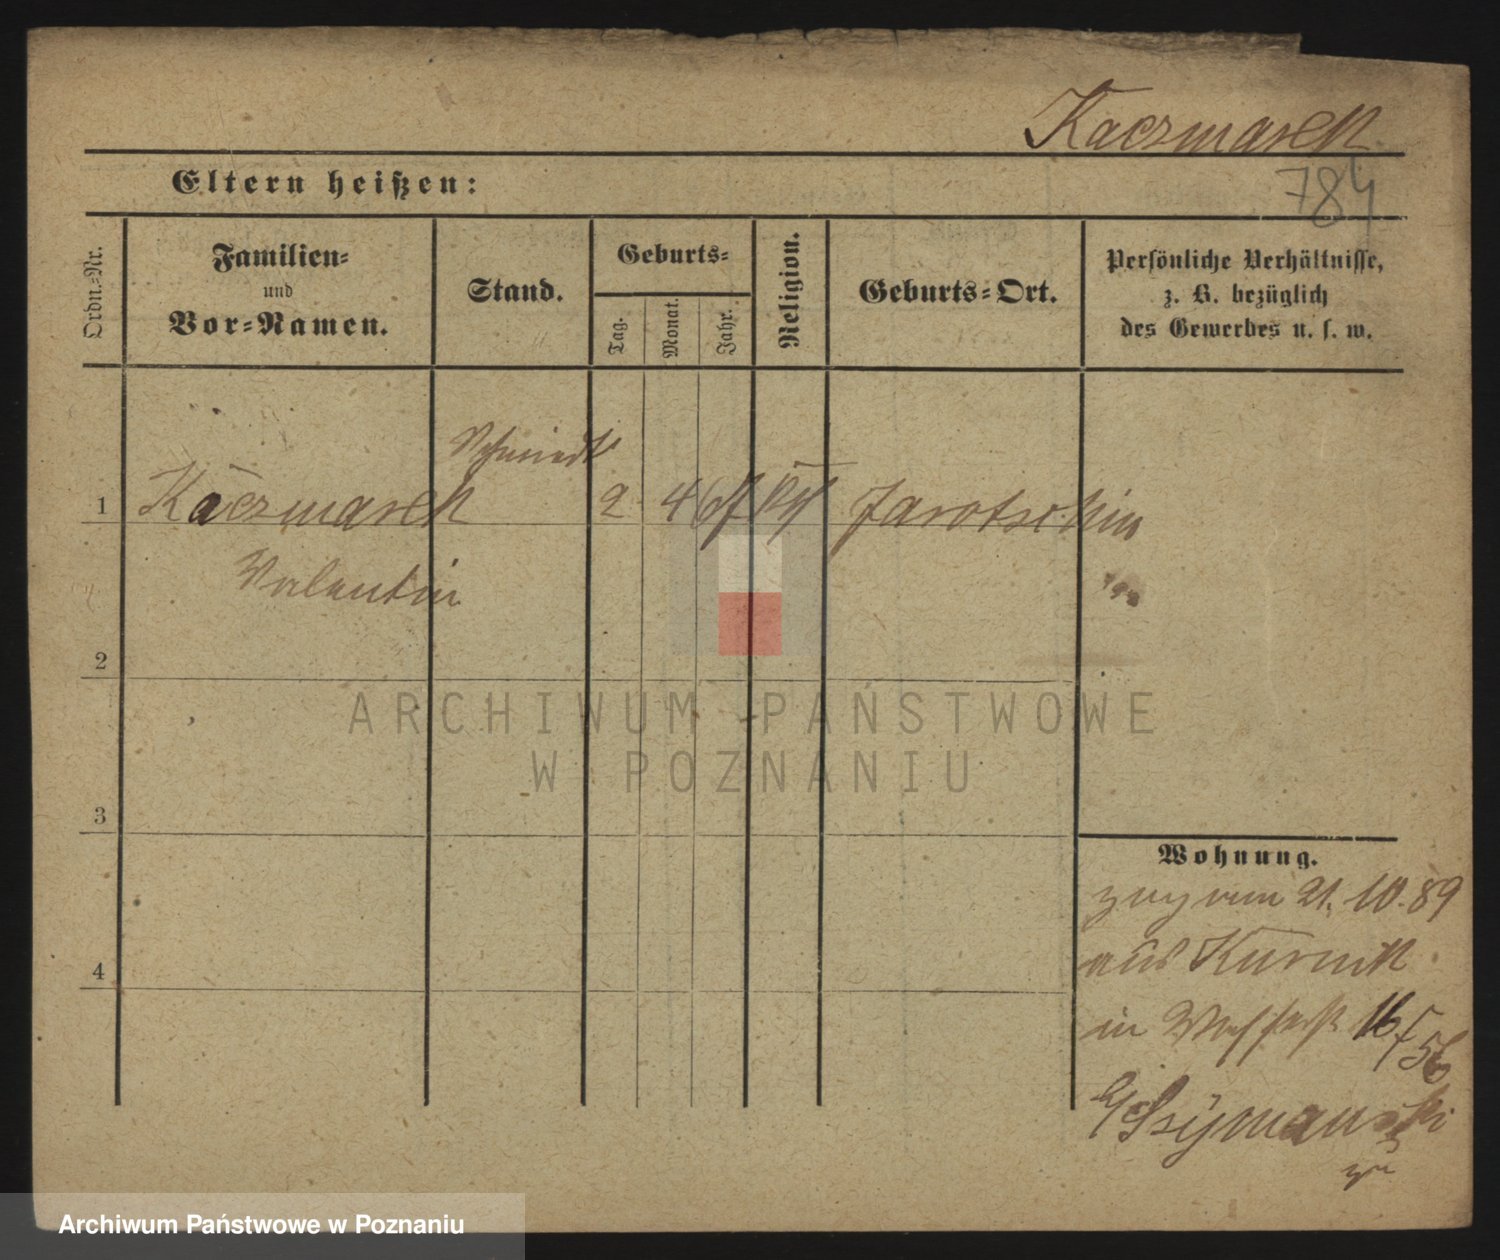 Kaczmarek
784
Eltern heißen:
Ordn.-Nr.
Familien-
und
Vor-Namen.
Stand.
Geburts-
Tag.
Monat.
Jahr.
Religion.
Geburts-Ort.
Persönliche Verhältnisse,
z. B. bezüglich
des Gewerbes u. s. w.
Schmiedt
1 Kaczmarek 2 4 Jarotschin
Valentin
2
3
4
Wohnung.
21. 10. 89
aus Kurnik
in 16/56
Szÿmanski
ARCHIWUM PAŃSTWOWE
W POZNANIU
Archiwum Państwowe w Poznaniu